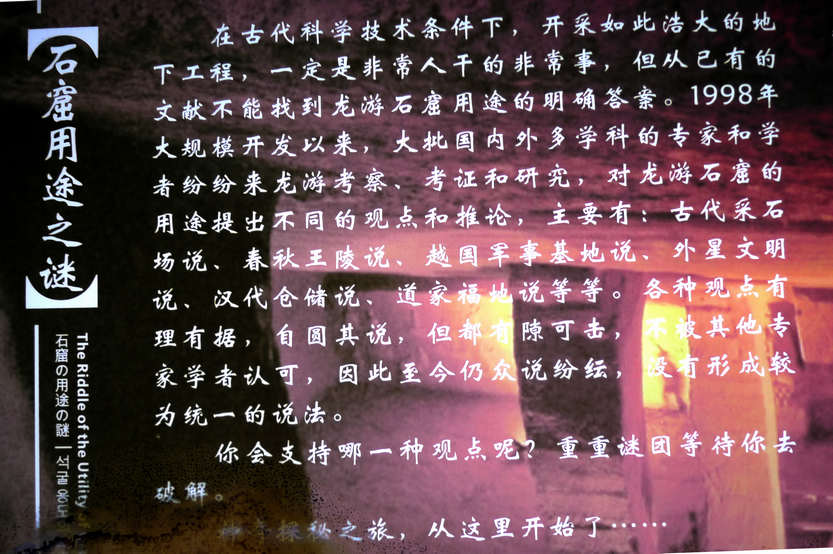 石窟用途之谜
The Riddle of the Utility
石窟の用途の謎
석굴용도
在古代科学技术条件下，开采如此浩大的地
下工程，一定是非常人干的非常事，但从已有的
文献不能找到龙游石窟用途的明确答案。1998年
大规模开发以来，大批国内外多学科的专家和学
者纷纷来龙游考察、考证和研究，对龙游石窟的
用途提出不同的观点和推论，主要有：古代采石
场说、春秋王陵说、越国军事基地说、外星文明
说、汉代仓储说、道家福地说等等。各种观点有
理有据，自圆其说，但都有隙可击，不被其他专
家学者认可，因此至今仍众说纷纭，没有形成较
为统一的说法。
你会支持哪一种观点呢？重重谜团等待你去
破解。
探秘之旅，从这里开始了……